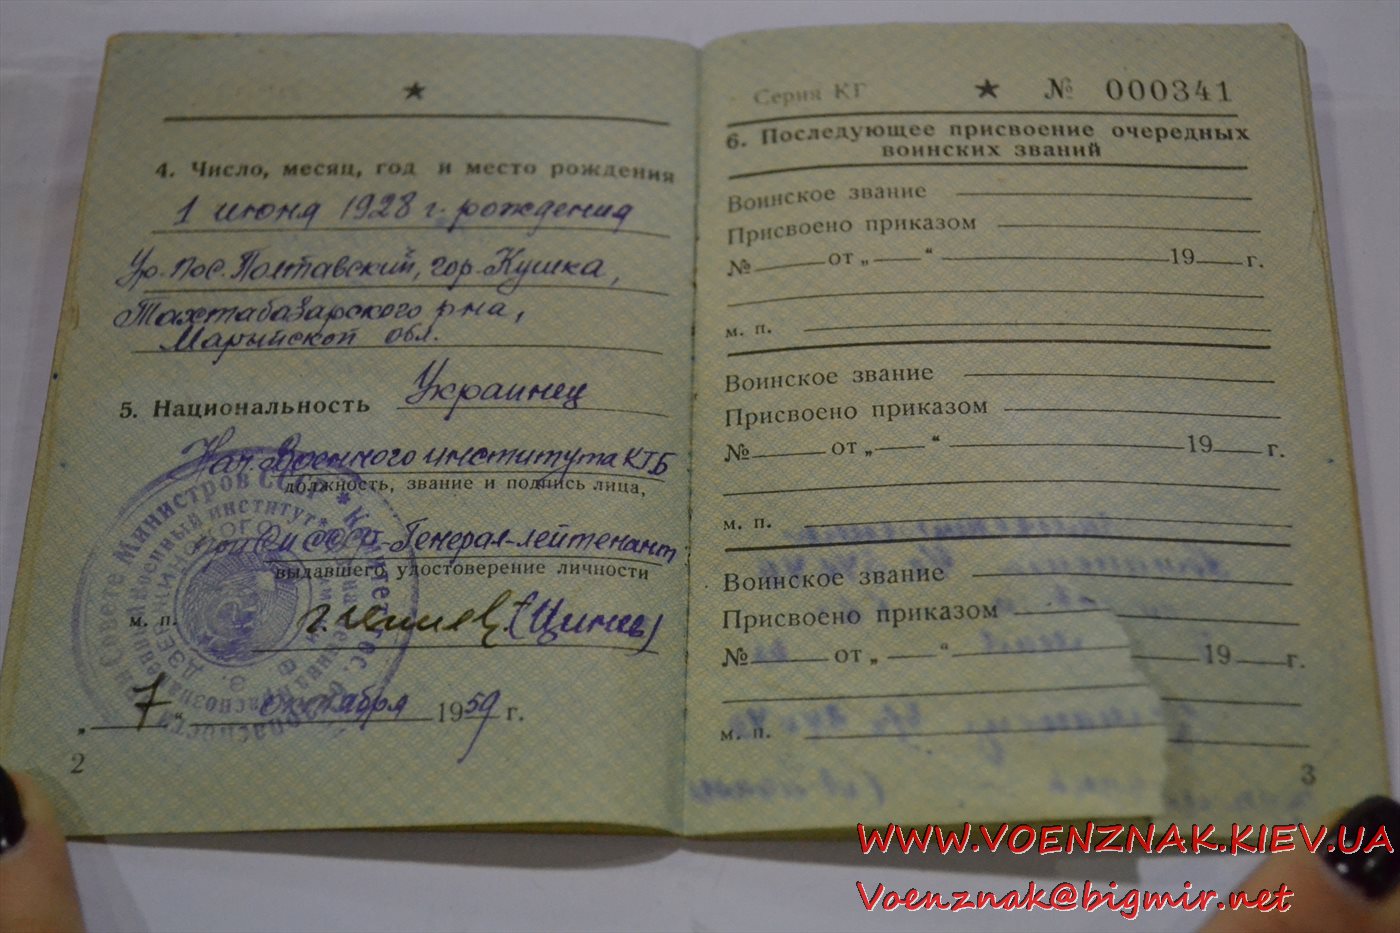 4. Число, месяц, год и место рождения
1 июня 1928 г. рождения
Ур. пос. Полтавский, гор. Кушка,
Тахтабазарского р-на,
Марыйской обл.
5. Национальность Украинец
Нач. Военного института КГБ
должность, звание и подпись лица,
при СМ СССР-Генерал-лейтенант
выдавшего удостоверение личности
м. п. (Цинев)
„ 7 “ октября 1959 г.
2
Серия КГ № 000341
6. Последующее присвоение очередных
воинских званий
Воинское звание
Присвоено приказом
№ от „ “ 19 г.
м. п.
Воинское звание
Присвоено приказом
№ от „ “ 19 г.
м. п.
Воинское звание
Присвоено приказом
№ от „ “ 19 г.
м. п.
3
WWW.VOENZNAK.KIEV.UA
Voenznak@bigmir.net